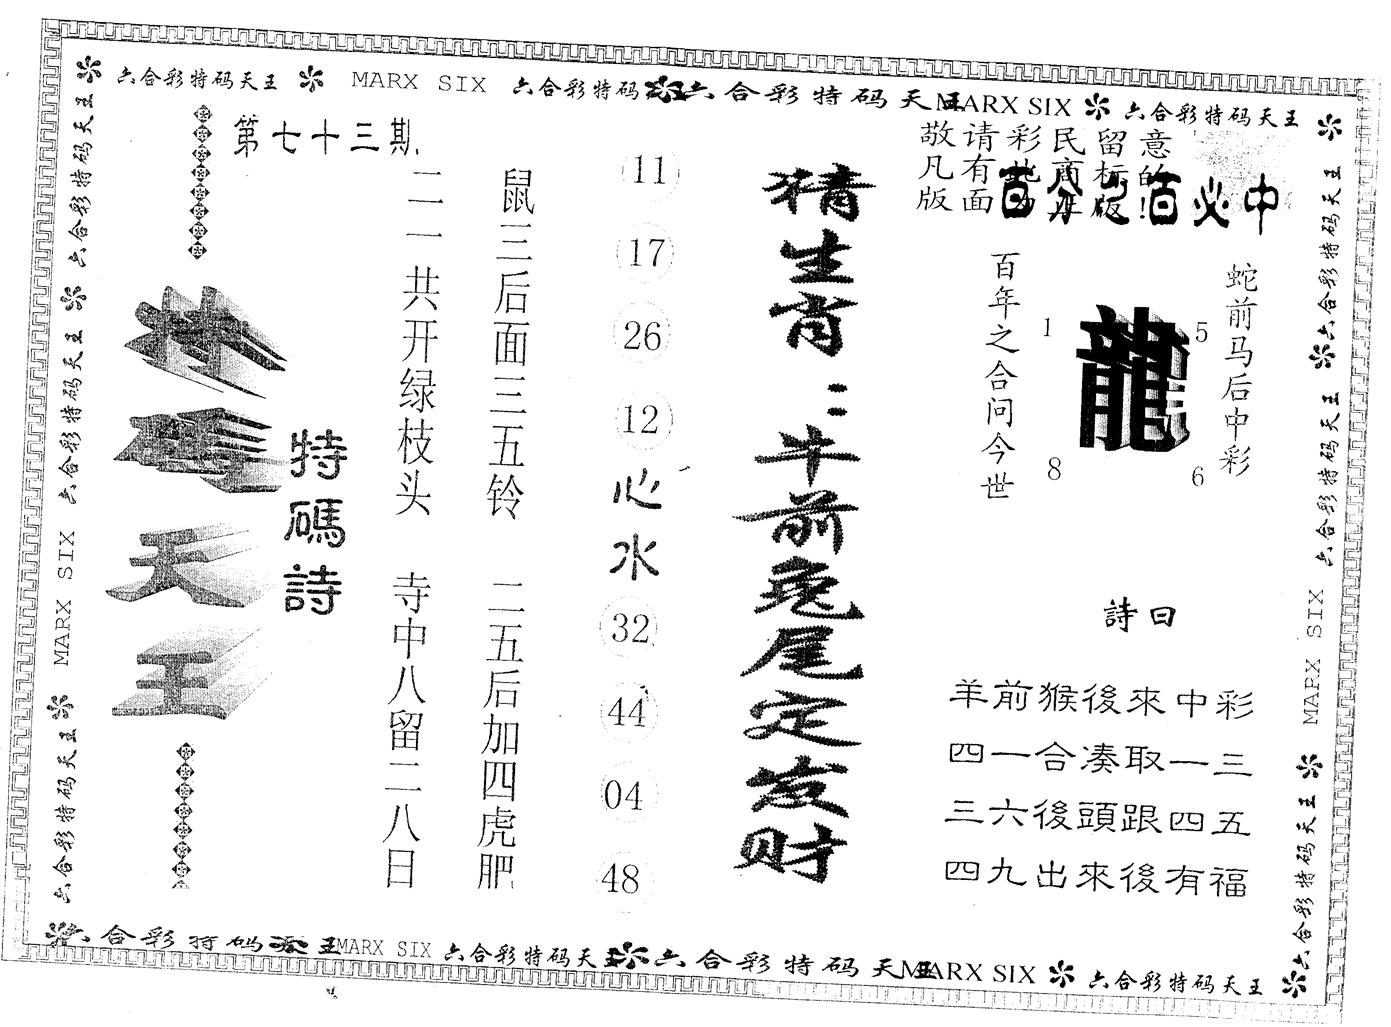 六合彩特码天王 MARX SIX 六合彩特码 六合彩特码天王 MARX SIX 六合彩特码天王
第七十三期
特碼天王
特碼詩
二一一共开绿枝头 寺中八留二八日
鼠三后面三五铃 二五后加四虎肥
11
17
26
12
心水
32
44
04
48
猜生肖：牛前兔尾定发财
敬请彩民留意
凡有此商标的
版面为正版!
百分之百必中
百年之合问今世
1
龍
5
8
6
蛇前马后中彩
詩曰
羊前猴後來中彩
四一合凑取一三
三六後頭跟四五
四九出來後有福
六合彩特码天王
六合彩特码天王
六合彩特码天王
MARX SIX
六合彩特码天王
六合彩特码天王
六合彩特码天王
六合彩特码天王
MARX SIX
六合彩特码天王
六合彩特码天王 MARX SIX 六合彩特码天王 六合彩特码天王 MARX SIX 六合彩特码天王